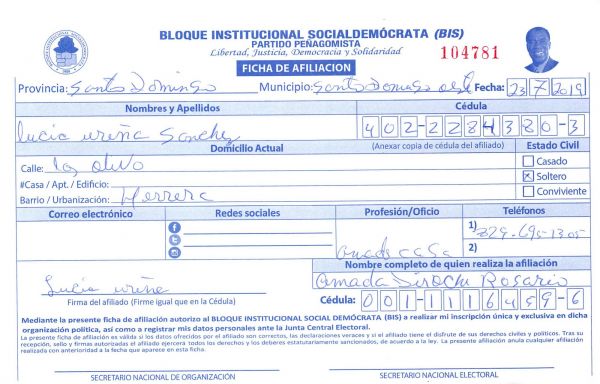 BLOQUE INSTITUCIONAL SOCIALDEMÓCRATA (BIS)
PARTIDO PEÑAGOMISTA
Libertad, Justicia, Democracia y Solidaridad
104781
FICHA DE AFILIACION
Provincia: Santo Domingo Municipio: Santo Domingo oeste Fecha: 23/7/2019
Nombres y Apellidos Cédula
Lucia ureña Sanchez 402-2284380-3
Domicilio Actual (Anexar copia de cédula del afiliado) Estado Civil
Calle: la olivo Casado
#Casa / Apt. / Edificio: Soltero
Barrio / Urbanización: Herrera Conviviente
Correo electrónico Redes sociales Profesión/Oficio Teléfonos
1) 829-695-1305
ama de casa 2)
Nombre completo de quien realiza la afiliación
Lucia ureña Amada Rosario
Firma del afiliado (Firme igual que en la Cédula) Cédula: 001-1116459-6
Mediante la presente ficha de afiliación autorizo al BLOQUE INSTITUCIONAL SOCIAL DEMÓCRATA (BIS) a realizar mi inscripción única y exclusiva en dicha
organización política, así como a registrar mis datos personales ante la Junta Central Electoral.
La presente ficha de afiliación es válida si los datos ofrecidos por el afiliado son correctos, las declaraciones veraces y si el titular tiene el disfrute de sus derechos civiles y políticos. Tras su
recepción, sello y firmas autorizadas el afiliado ejercerá todos los derechos y los deberes estatutariamente sancionados, de acuerdo a la ley. La presente afiliación anula cualquier afiliación
realizada con anterioridad a la fecha que aparece en esta ficha.
SECRETARIO NACIONAL DE ORGANIZACIÓN SECRETARIO NACIONAL ELECTORAL